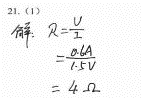 21. (1)
解: R = U/I
= 0.6A/1.5V
= 4Ω